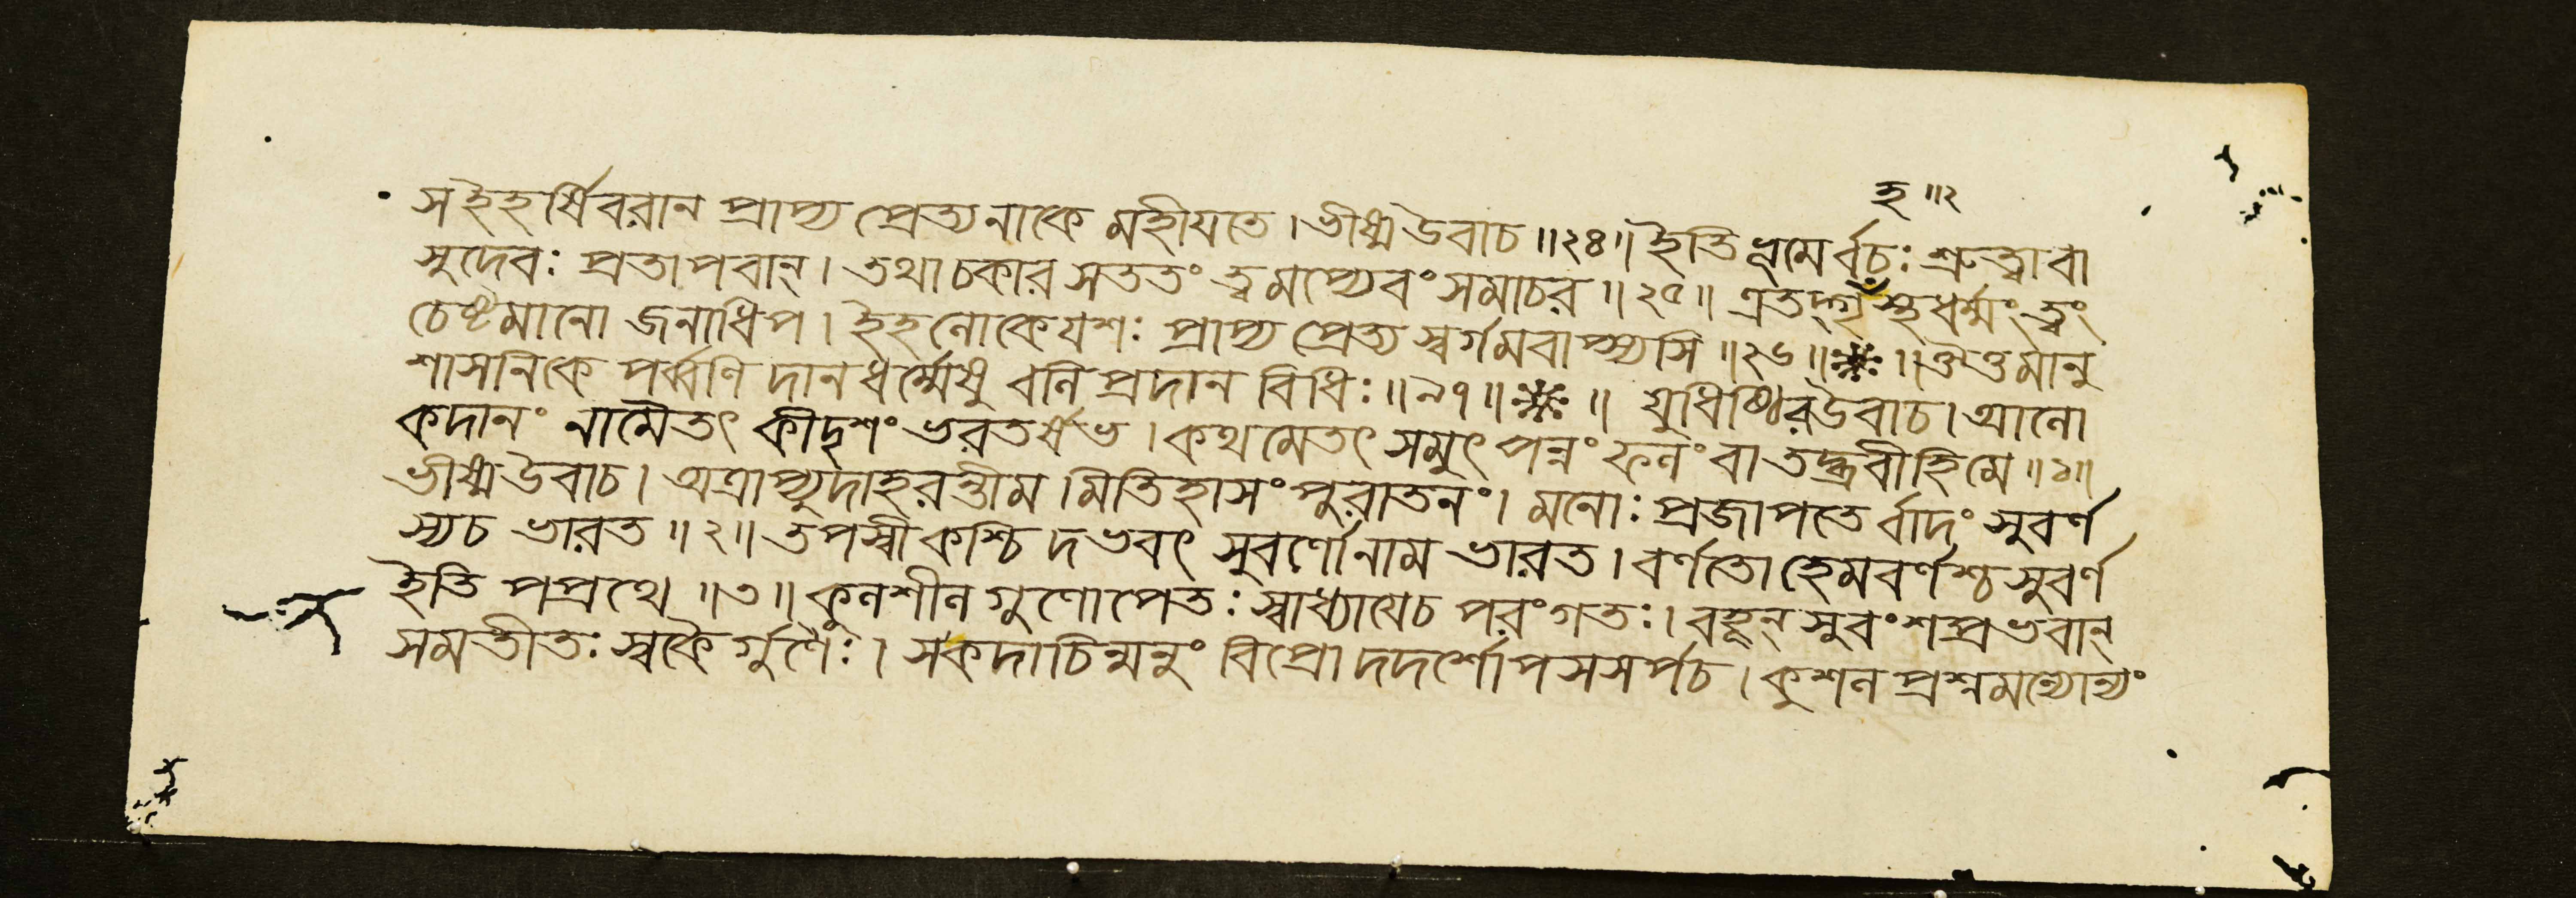 হ ॥২
সইহর্ষিবরান প্রাপ্য প্রেত্যনাকে মহীযতে। ভীষ্মউবাচ॥২৪॥ ইতি ভূমের্বচঃ শ্রুত্বাবা
সুদেবঃ প্রতাপবান্। তথাচকার সততং ত্বমপ্যেবং সমাচর॥২৫॥ এতদ্গৃহস্থধর্ম্মং ত্বং
চেষ্টমানো জনাধিপ। ইহলোকেযশঃ প্রাপ্য প্রেত্য স্বর্গমবাপ্স্যসি॥২৬॥ ॥ ঔত্তমানু
শাসনিকে পর্ব্বণি দানধর্ম্মেষু বলি প্রদান বিধিঃ॥৯৭॥ ॥ যুধিষ্ঠিরউবাচ। আলো
কদানং নামৈতৎ কীদৃশং ভরতর্ষভ। কথমেতৎ সমুৎপন্নং ফলংবা তদ্ব্রবীহিমে॥১॥
ভীষ্মউবাচ। অত্রাপ্যুদাহরন্তীম।মিতিহাসং পুরাতনং। মনোঃ প্রজাপতের্বাদং সুবর্ণ
স্যচ ভারত॥২॥ তপস্বীকশ্চিদভবৎ সুবর্ণোনাম ভারত। বর্ণতোহেমবর্ণশ্চ সুবর্ণ
ইতি পপ্রথে॥৩॥ কুলশীলগুণোপেতঃ স্বাধ্যাযেচ পরংগতঃ। বহূন্ সুবংশপ্রভবান্
সমতীতঃ স্বকৈর্গুণৈঃ। সকদাচিন্মনুং বিপ্রোদদর্শোপসসর্পচ। কুশলপ্রশ্নমন্যোন্যং